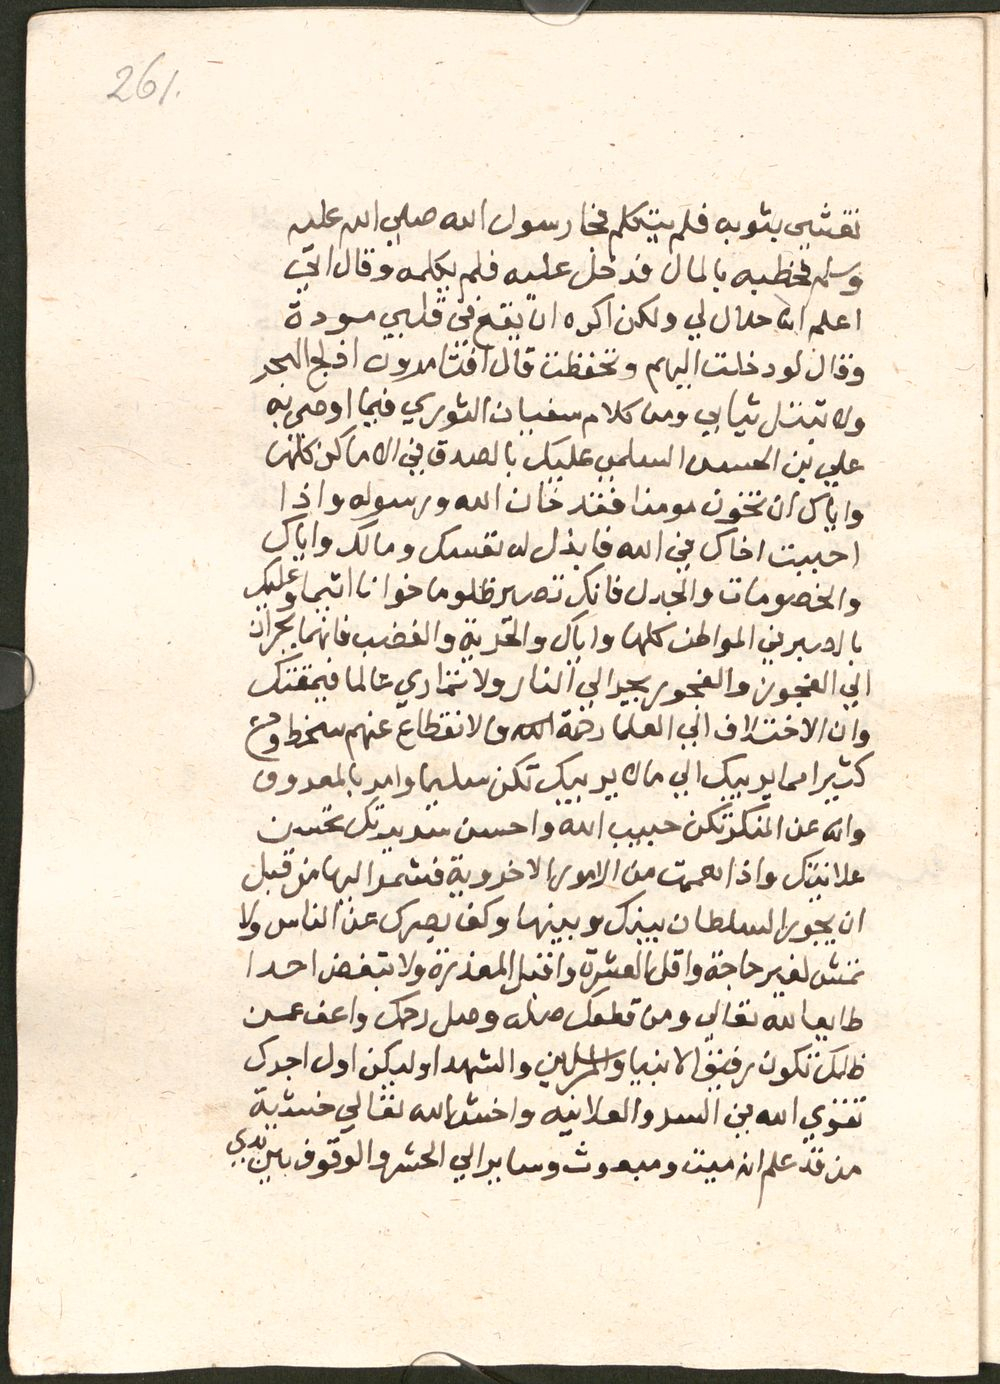 261.
تغشي بثوبه فلم يتكلم نخا رسول الله صلي الله عليه
وسلم فخطبه بالمال فدخل عليه فلم يكلمه وقال اني
اعلم انه حلال لي ولكن اكره ان يقع في قلبي مودة
وقال لو دخلت اليهم وتحفظت قال افتامرون افلج البحر
ولا تبتل ثيابي ومن كلام سفيان الثوري فيما اوصي به
علي بن الحسن السلمي عليك بالصدق في الاماكن كلها
واياك ان تخون مومنا فقد خان الله ورسوله واذا
احببت اخاك في الله فابذل له نفسك ومالك واياك
والخصومات والجدل فانك تصير ظلوما خوانا اثيما وعليك
بالصبر في المواطن كلها واياك والحدية والغضب فانهما يجران
الي الفجور والفجور يجر الي النار ولا تماري عالما فيمقتك
وان الاختلاف الي العلما رحمة الله والانقطاع عنهم سخط ودع
كثيرا مما يريبك الي ما لا يريبك تكن سليما وامر بالمعروف
وانه عن المنكر تكن حبيب الله واحسن سريرتك تحسن
علانيتك واذا هممت من الامور الاخروية فشمر اليها من قبل
ان يجور السلطان بينك وبينها وكف بصرك عن الناس ولا
تمش لغير حاجة واقل العشرة واقبل المعذرة ولا تبغض احدا
طايعا لله تعالي ومن قطعك صله وصل رحمك واعف عمن
ظلمك تكون رفيق الانبيا والمرسلين والشهدا وليكن اول اجرك
تقوي الله في السر والعلانيه واخش الله تعالي خشية
من قد علم انه ميت ومبعوث وساير الي الحشر والوقوف بين يدي